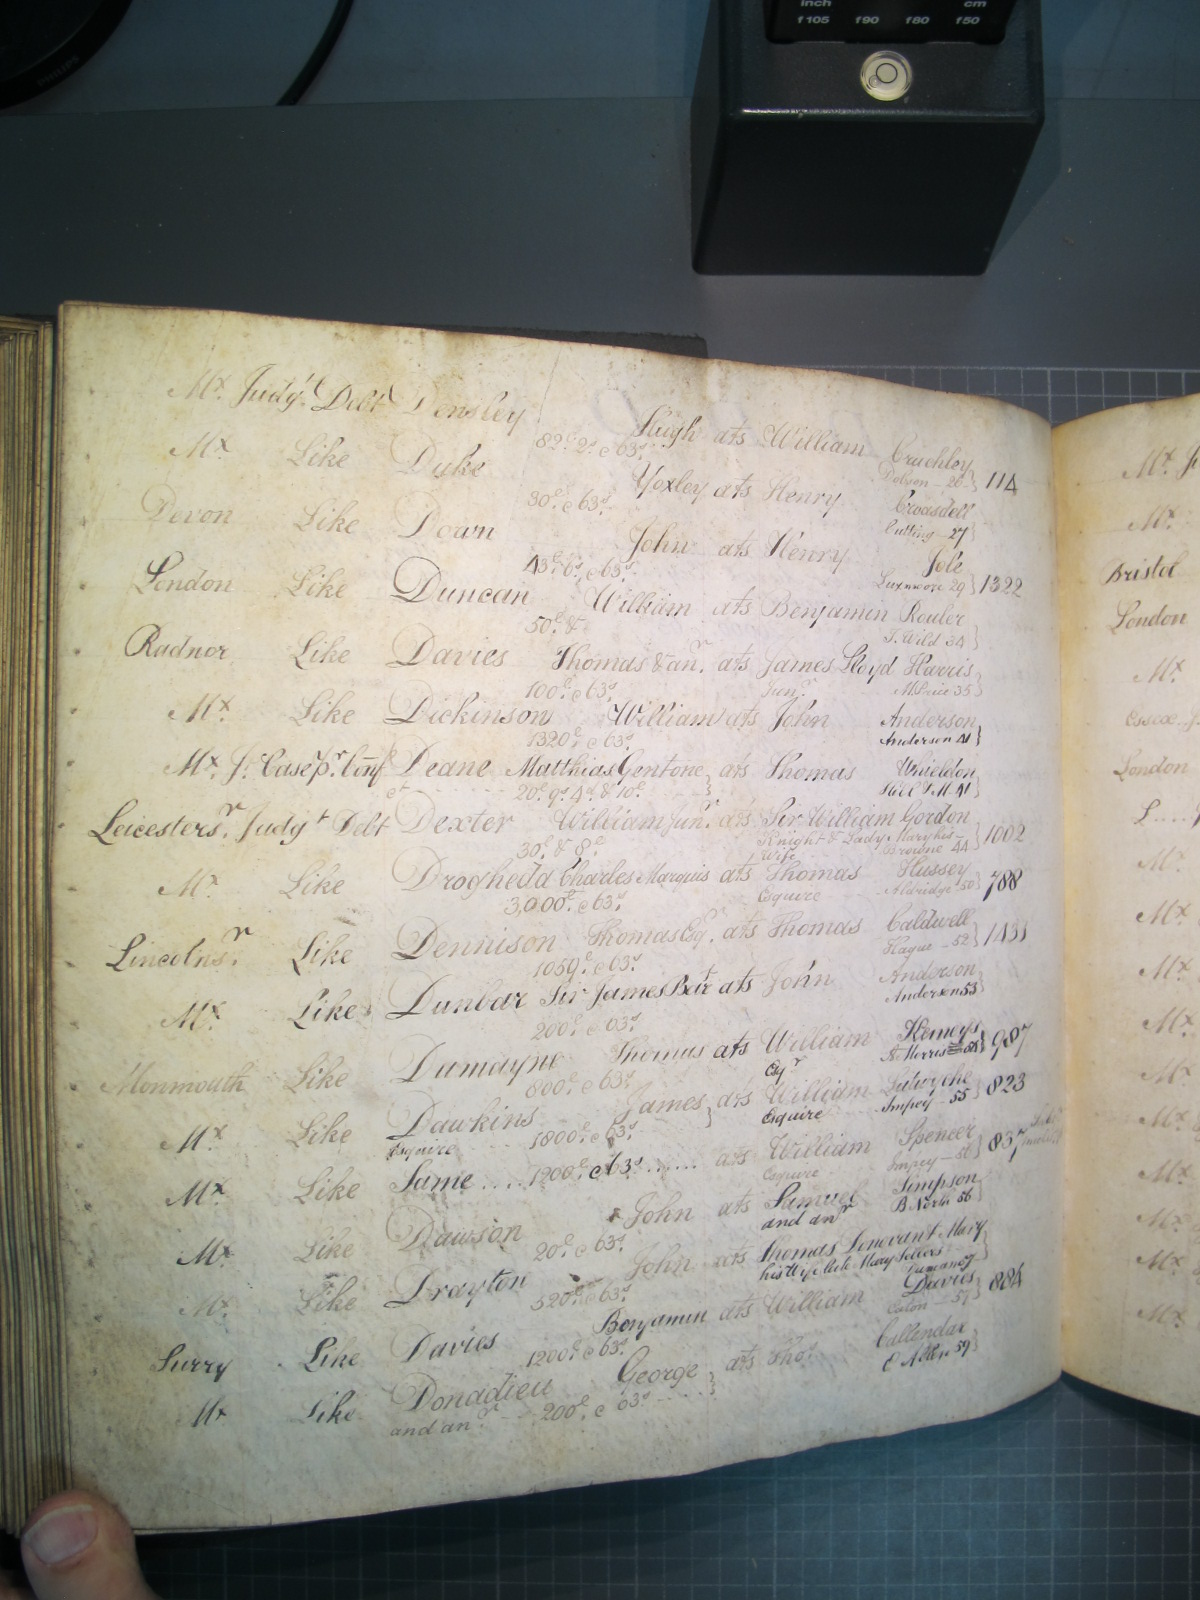 inch cm
f105 f90 f80 f50
Mx. Judgt. Debt Densley Hugh ats William Cruchley
82£ 2s c 63s. Dobson - 26} 114
Mx Like Duke Yoxley ats Henry Croasdell
30£ c 63s. Cutting - 27}
Devon Like Down John ats Henry Jole
43£ 6s. c 63s. Luxmore 29} 1322
London Like Duncan William ats Benjamin Rouler
50£ & T. Wild 34}
Radnor Like Davies Thomas & anr. ats James Lloyd Harris
100£ c 63s. Junr. 35}
Mx Like Dickinson William ats John Anderson
1320£ c 63s. Anderson 41}
Mx. J. Case pr. Conf Deane Matthias Gentone} ats Thomas Whieldon
20£. 9s. 4d. & 10£. 41}
Leicesters.r Judgt Debt Dexter William junr. ats Sir William Gordon
30£. & 8£. Knight & Lady Mary his Wife Browne 44} 1002
Mx. Like Drogheda Charles Marquis ats Thomas Hussey
3,000£. c 63s. Esquire Aldridge 50} 788
Lincolns.r Like Dennison Thomas Esq. ats Thomas Caldwell
1059£ c 63s. Hague - 52} 1433
Mx Like Dunbar Sir James Bart ats John Anderson
200£ c 63s. Anderson 53}
Monmouth Like Dumayne Thomas ats William Kemeys
800£ c 63s. Esqr Morris 987
Mx Like Dawkins James} ats William Lutwyche
Esquire 1800£ c 63s. Esquire Impey - 55} 823
Mx Like Same .... 1200£ c 63s ...... ats William Spencer
Esquire Impey - 56} 837
Mx Like Dawson John ats Samuel Simpson
20£ c 63s. and anr B. North 56}
Mx. Like Drayton John ats Thomas Lenevant Mary
520£ c 63s. his Wife Mary Sellers
Surry Like Davies Benjamin ats William Davies
1200£ c 63s. Eaton - 57} 884
Mx Like Donadieu George} ats Thos. Callendar
and anr. 200£ c 63s C Allen 59}
Mx.
Mx.
Bristol
London
Mx.
Essex
London
L....
Mx.
Mx.
Mx.
Mx.
Mx.
Mx.
Mx.
Mx.
Mx.
Mx.